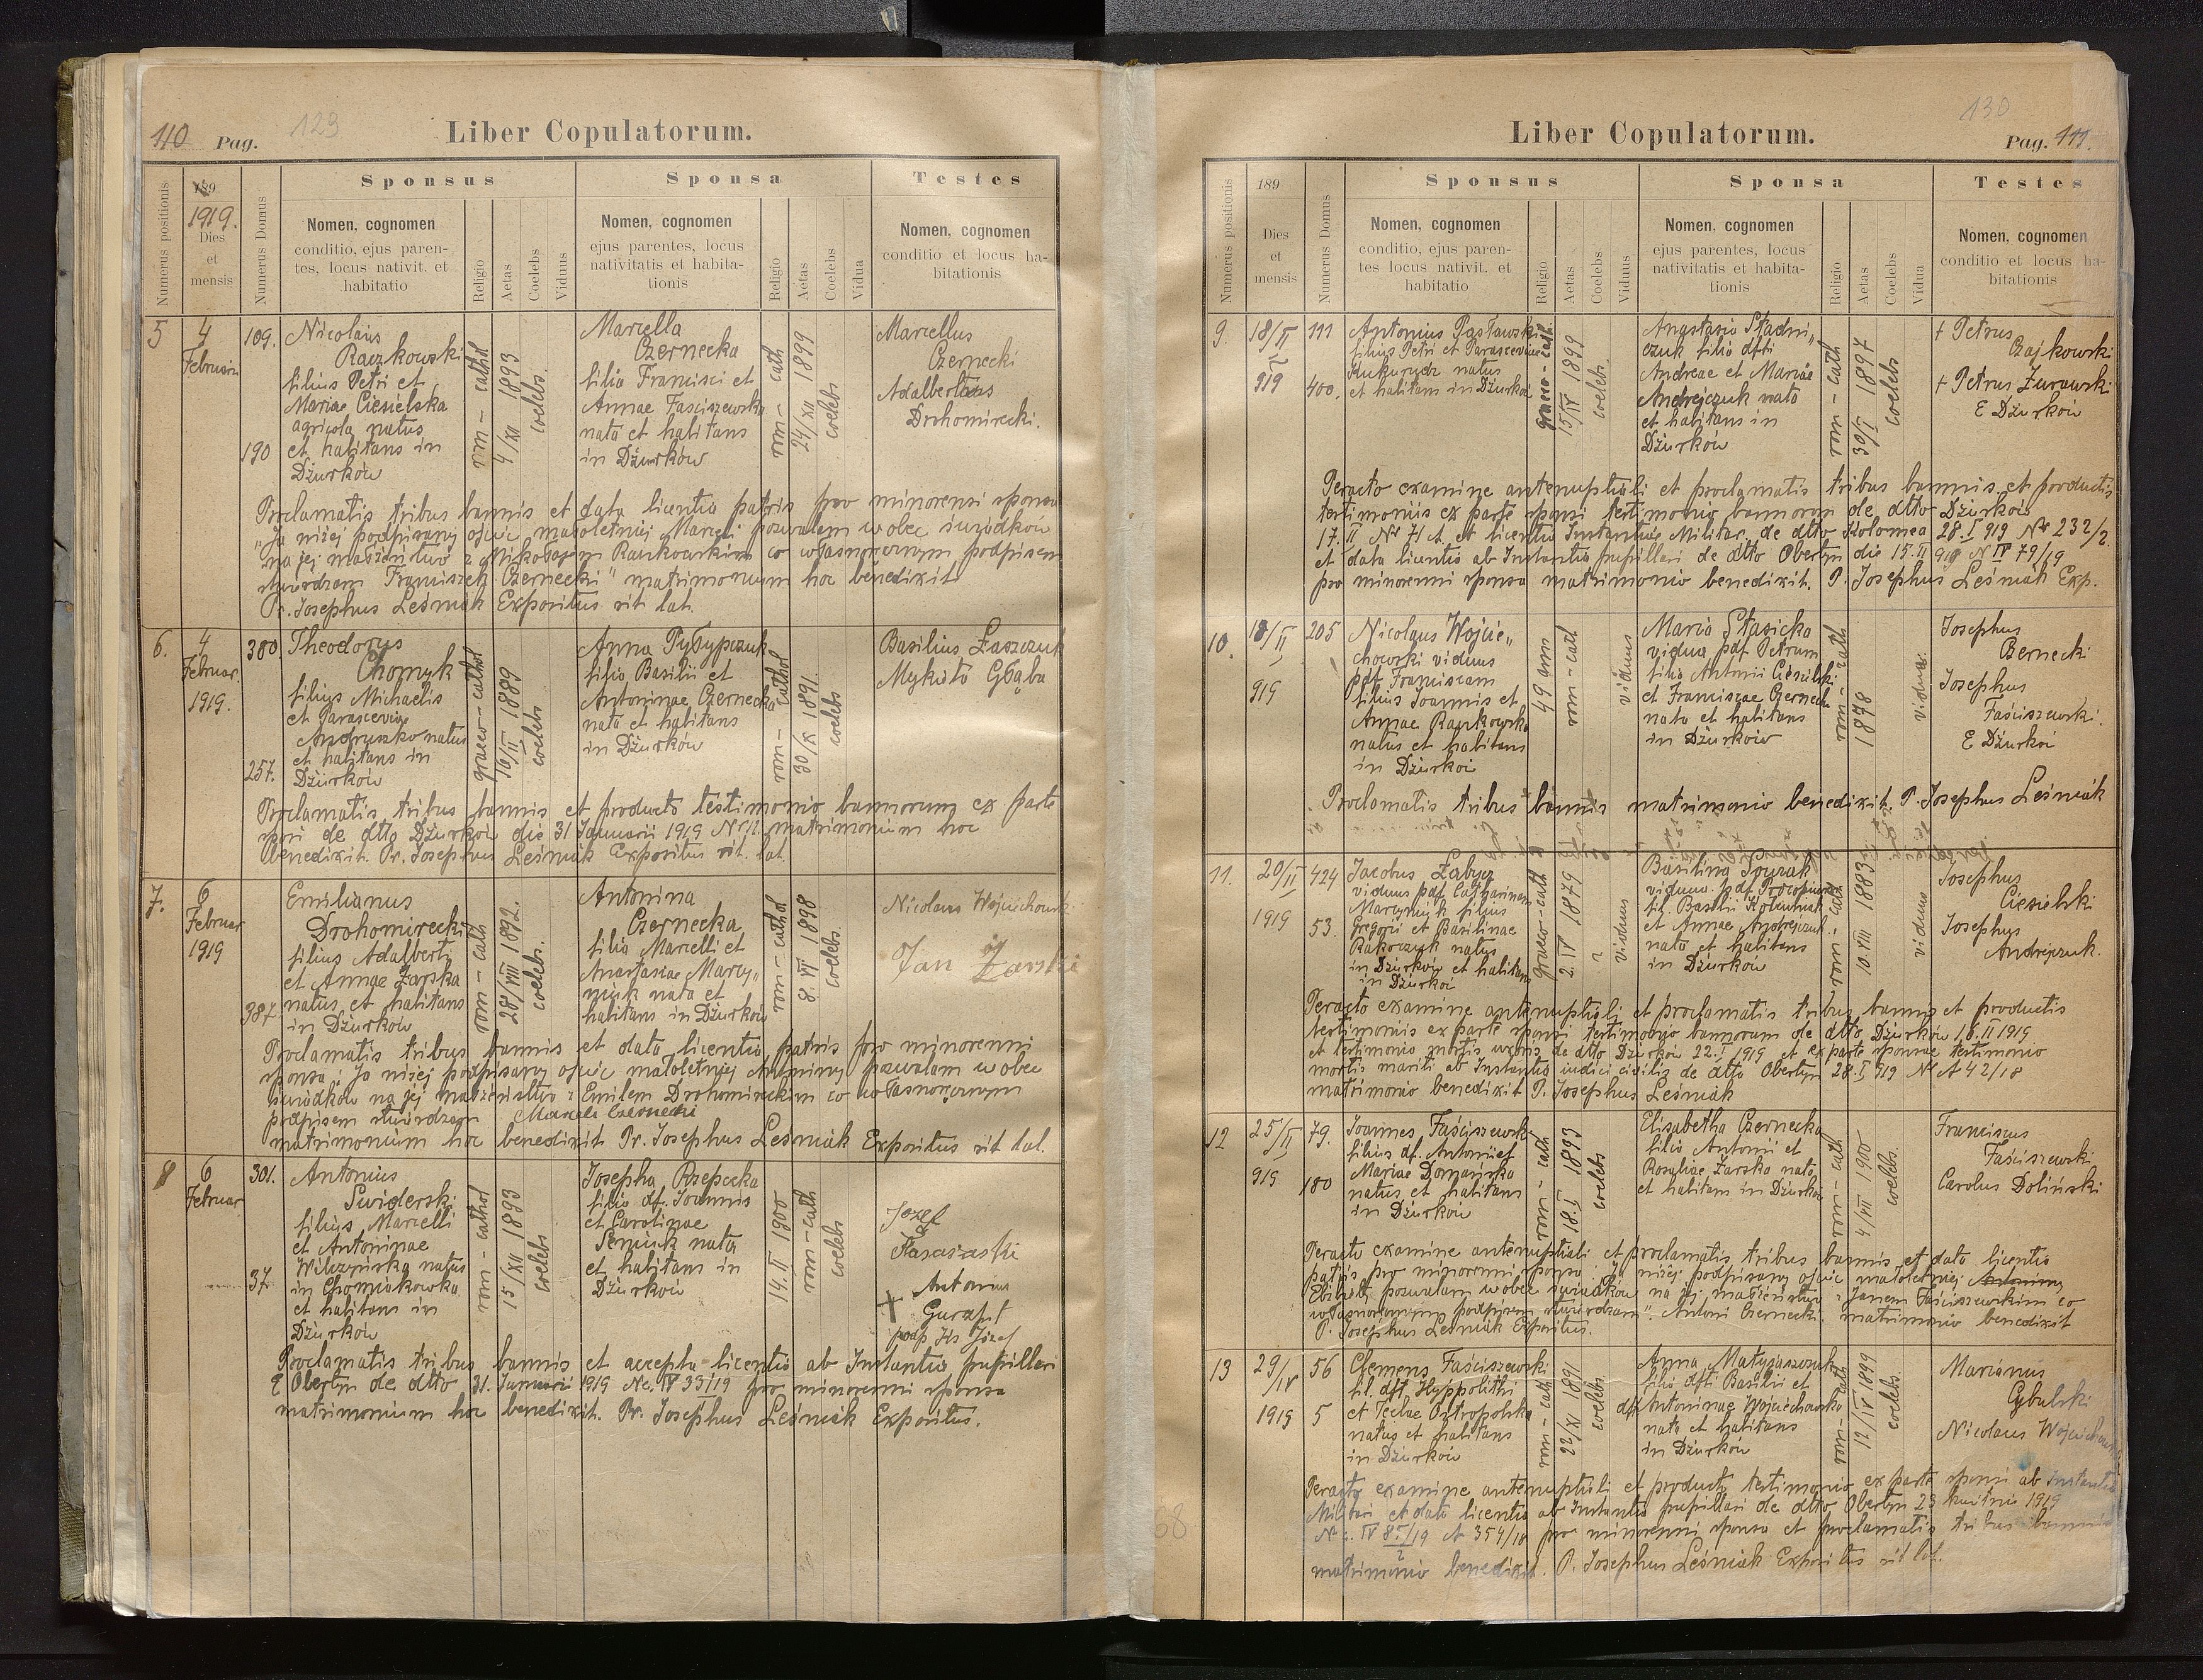 110 Pag. 123 Liber Copulatorum.
Numerus positionis
189
1919.
Dies
et
mensis
Numerus Domus
Sponsus
Nomen, cognomen
conditio, ejus paren-
tes, locus nativit. et
habitatio
Religio
Aetas
Coelebs
Viduus
Sponsa
Nomen, cognomen
ejus parentes, locus
nativitatis et habita-
tionis
Religio
Aetas
Coelebs
Vidua
Testes
Nomen, cognomen
conditio et locus ha-
bitationis
5
4
Februarii
109.
190
Nicolaus
Raczkowski
filius Petri et
Mariae Ciesielska
agricola natus
et habitans in
Dżurków
rom - cathol
4/XII 1893
coelebs.
Marcella
Czernecka
filia Francisci et
Annae Fasciszewska
nata et habitans
in Dżurków
rom - cath
24/XII 1899
coelebs
Marcellus
Czernecki
Adalbertus
Drohomirecki.
Proclamatis tribus bannis et data licentia patris pro minorensi sponsa
"Ja niżej podpisany ojciec małoletniej Marceli pozwalam wobec świadków
na jej małżeństwo z Mikołajem Raczkowskim co własnoręcznym podpisem
stwierdzam Franciszek Czernecki" matrimonium hoc benedixit
Pr. Josephus Leśniak Expositus rit lat.
6.
4
Februar.
1919.
380.
257.
Theodorus
Chomyk
filius Michaelis
et Parasceviae
Andruszko natus
et habitans in
Dżurków
graeco - cathol
16/II 1889
coelebs
Anna Pyłypczuk
filia Basilii et
Antoninae Czernecka
nata et habitans
in Dżurków
rom - cathol
30/IX 1891.
coelebs
Basilius Łaszczuk
Mykita Głąba
Proclamatis tribus bannis et producto testimonio bannorum ex parte
spsi de dtto Dżurków die 31 Januarii 1919 matrimonium hoc
benedixit. Pr. Josephus Leśniak Expositus rit. lat.
7.
6
Februar
1919
387
Emilianus
Drohomirecki
filius Adalberti
et Annae Żarska
natus et habitans
in Dżurków
rom - cath
28/VIII 1892.
coelebs.
Antonina
Czernecka
filia Marcelli et
Anastasiae Marcy„
niuk nata et
habitans in Dżurków
rom - cathol
8. VI 1898
coelebs.
Nicolaus Wojciechowski
Jan Żarski
Proclamatis tribus bannis et data licentia patris pro minorenni
sponsa: Ja niżej podpisany ojciec małoletniej Antoniny pozwalam wobec
świadków na jej małżeństwo z Emilem Drohomireckim co własnoręcznym
podpisem stwierdzam Marceli Czernecki
matrimonium hoc benedixit Pr. Josephus Leśniak Expositus rit lat.
8
6
Februar
301.
37
Antonius
Swiderski
filius Marcelli
et Antoninae
Wilczyńska natus
in Chomiakówka
et habitans in
Dżurków
rom - cathol
15/XII 1893
coelebs
Josepha Rzepecka
filia df. Joannis
et Carolinae
Semiuk nata
et habitans in
Dżurków
14. II 1900
rom - cath
coelebs
Jozef
Antonius
Proclamatis tribus bannis et accepta licentia ab Instantia pupillari
E Obertyn de dtto 31. Januarii 1919 Nc. IV 33/19 pro minorenni sponsa
matrimonium hoc benedixit. Pr. Josephus Leśniak Expositus.
130
Liber Copulatorum. Pag. 111.
Numerus positionis
189
Dies
et
mensis
Numerus Domus
Sponsus
Nomen, cognomen
conditio, ejus paren-
tes locus nativit. et
habitatio
Religio
Aetas
Coelebs
Viduus
Sponsa
Nomen, cognomen
ejus parentes, locus
nativitatis et habita-
tionis
Religio
Aetas
Coelebs
Vidua
Testes
Nomen, cognomen
conditio et locus ha-
bitationis
9.
18/II
919
111
400.
Antonius Pasławski
filius Petri et Parasceviae
Kukurydz natus
et habitans in Dżurków
graeco - cath.
15/IV 1899
coelebs.
Anastasia Stadni„
czuk filia dfti
Andreae et Mariae
Andrejczuk nata
et habitans in
Dżurków
rom - cath
30/I 1897
coelebs
+ Petrus
Czajkowski
+ Petrus Żurawski
E Dżurków
Peracto examine antenuptiali et proclamatis tribus bannis et productis
testimoniis ex parte sponsi testimonio bannorum de dtto Dżurków
17. II Nr 71 et licentia Instantiae Militar. de dtto Kolomea 28. I 919 Nr 232/2
et data licentia ab Instantia pupillari de dtto Obertyn die 15. II 919 N IV 79/19
pro minorenni sponsa matrimonio benedixit. P. Josephus Leśniak Exp.
10.
18/II
919
205
Nicolaus Wojcie„
chowski viduus
pdf Franciscam
filius Joannis et
Annae Raczkowska
natus et habitans
in Dżurków
49 ann
rom - cat
viduus
Maria Stasicka
vidua pdf Petrum
filia Antonii Ciesielski
et Franciscae Czernecka
nata et habitans
in Dżurków
rom - cath
1878
vidua
Josephus
Bernecki
Josephus
Faściszewski.
E Dżurków
Proclamatis tribus bannis matrimonio benedixit. P. Josephus Leśniak
11.
20/II
1919
424
53.
Jacobus Łabycz
viduus pdf Catharinam
Marcyniuk filius
Gregorii et Basilinae
natus
in Dżurków et habitans
in Dżurków
graeco - cath
2. IV 1879
viduus
Basilina
vidua pdf Procopium
fil. Basilii
et Annae Andrejczuk
nata et habitans
in Dżurków
rom - cath
10. VIII 1883
vidua
Josephus
Ciesielski
Josephus
Andrejczuk.
Peracto examine antenuptiali et proclamatis tribus bannis et productis
testimoniis ex parte sponsi testimonio bannorum de dtto Dżurków 16. II 1919
et testimonio mortis uxoris de dtto Dżurków 22. I 1919 et ex parte sponsae testimonio
mortis mariti ab Instantia iudici civilis de dtto Obertyn 28. I 919 Nr A 42/18
matrimonio benedixit P. Josephus Leśniak
12
25/II
919
79.
180
Joannes Faściszewski
filius df. Antonii et
Mariae Domańska
natus et habitans
in Dżurków
rom - cath
18. I 1893
coelebs
Elisabetha Czernecka
filia Antonii et
Rosaliae Żarska nata
et habitans in Dżurków
rom - cath
4/VII 1900
coelebs.
Franciscus
Faściszewski
Carolus Doliński
Peracto examine antenuptiali et proclamatis tribus bannis et data licentia
patris pro minorenni sponsa: "Ja niżej podpisany ojciec małoletniej Antoniny
pozwalam wobec świadków na jej małżeństwo z Janem Faściszewskim co
własnoręcznym podpisem stwierdzam". Antoni Czernecki. matrimonio benedixit
P. Josephus Leśniak Expositus.
13
29/IV
1919
56
5
Clemens Faściszewski
fil. dft. Hyppolithi
et Teclae Ostropolska
natus et habitans
in Dżurków
rom - cath
22/XI 1891
coelebs.
Anna Matyjaszczuk
filia dfti Basilii et
dft Antoninae Wojciechowska
nata et habitans
in Dżurków
rom - cath
12/IV 1899
coelebs
Marianus
Cybulski
Nicolaus Wojciechowski
Peracto examine antenuptiali et producto testimonio ex parte sponsi ab Instantia
Militari et data licentia ab Instantia pupillari de dtto Obertyn 23 kwietnia 1919
pro minorenni sponsa et proclamatis tribus bannis
matrimonio benedixit. P. Josephus Leśniak Expositus rit lat.
68